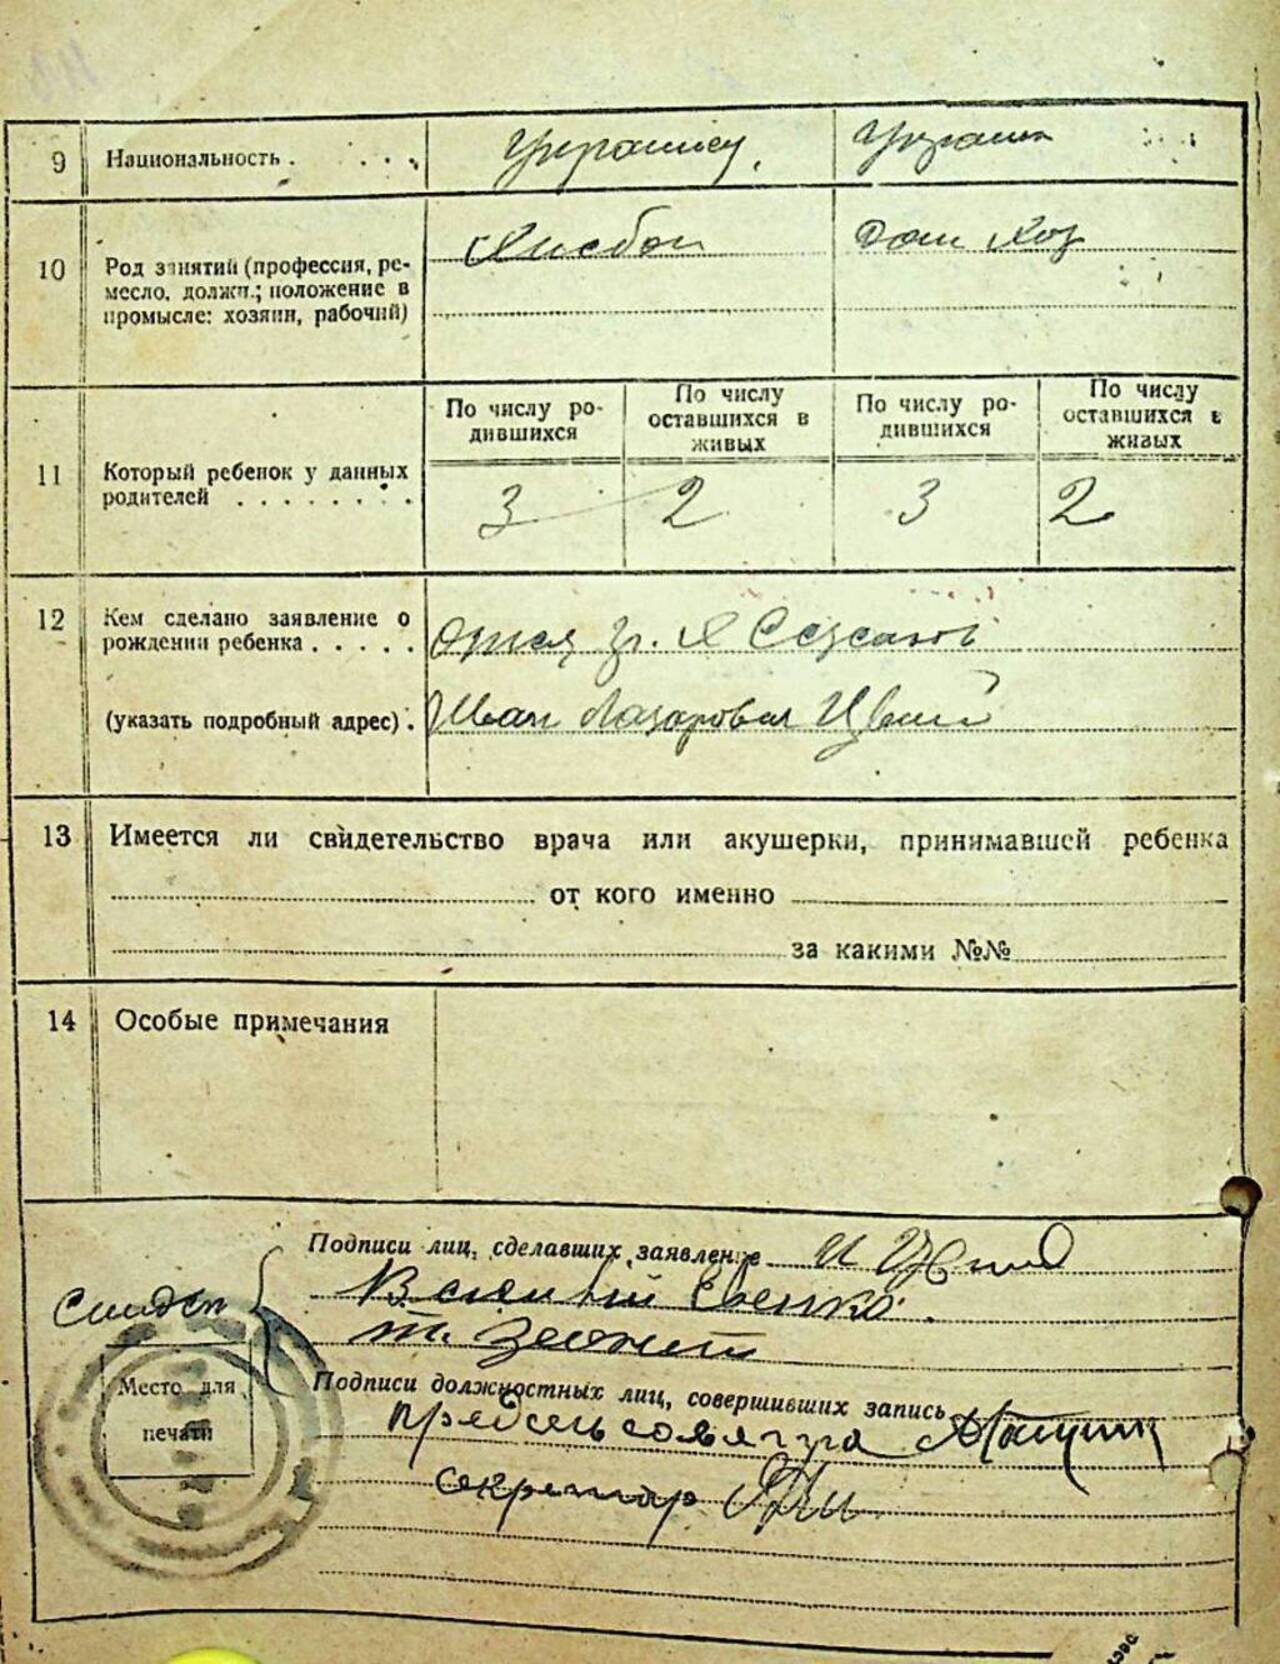 9 Национальность . . . . Украинец. Украин
10 Род занятий (профессия, ре-
месло, должн.; положение в
промысле: хозяин, рабочий)
Дом хоз
11 Который ребенок у данных
родителей . . . . . . . .
По числу ро-
дившихся
По числу
оставшихся в
живых
По числу ро-
дившихся
По числу
оставшихся в
живых
3 2 3 2
12 Кем сделано заявление о
рождении ребенка . . . . .
(указать подробный адрес) . Иван Лазарович Цвик
13 Имеется ли свидетельство врача или акушерки, принимавшей ребенка
от кого именно
за какими №№
14 Особые примечания
Подписи лиц, сделавших заявление И Цвик
Василий Евенко.
Место для
печати
Подписи должностных лиц, совершивших запись
Предсельсовета
Секретар